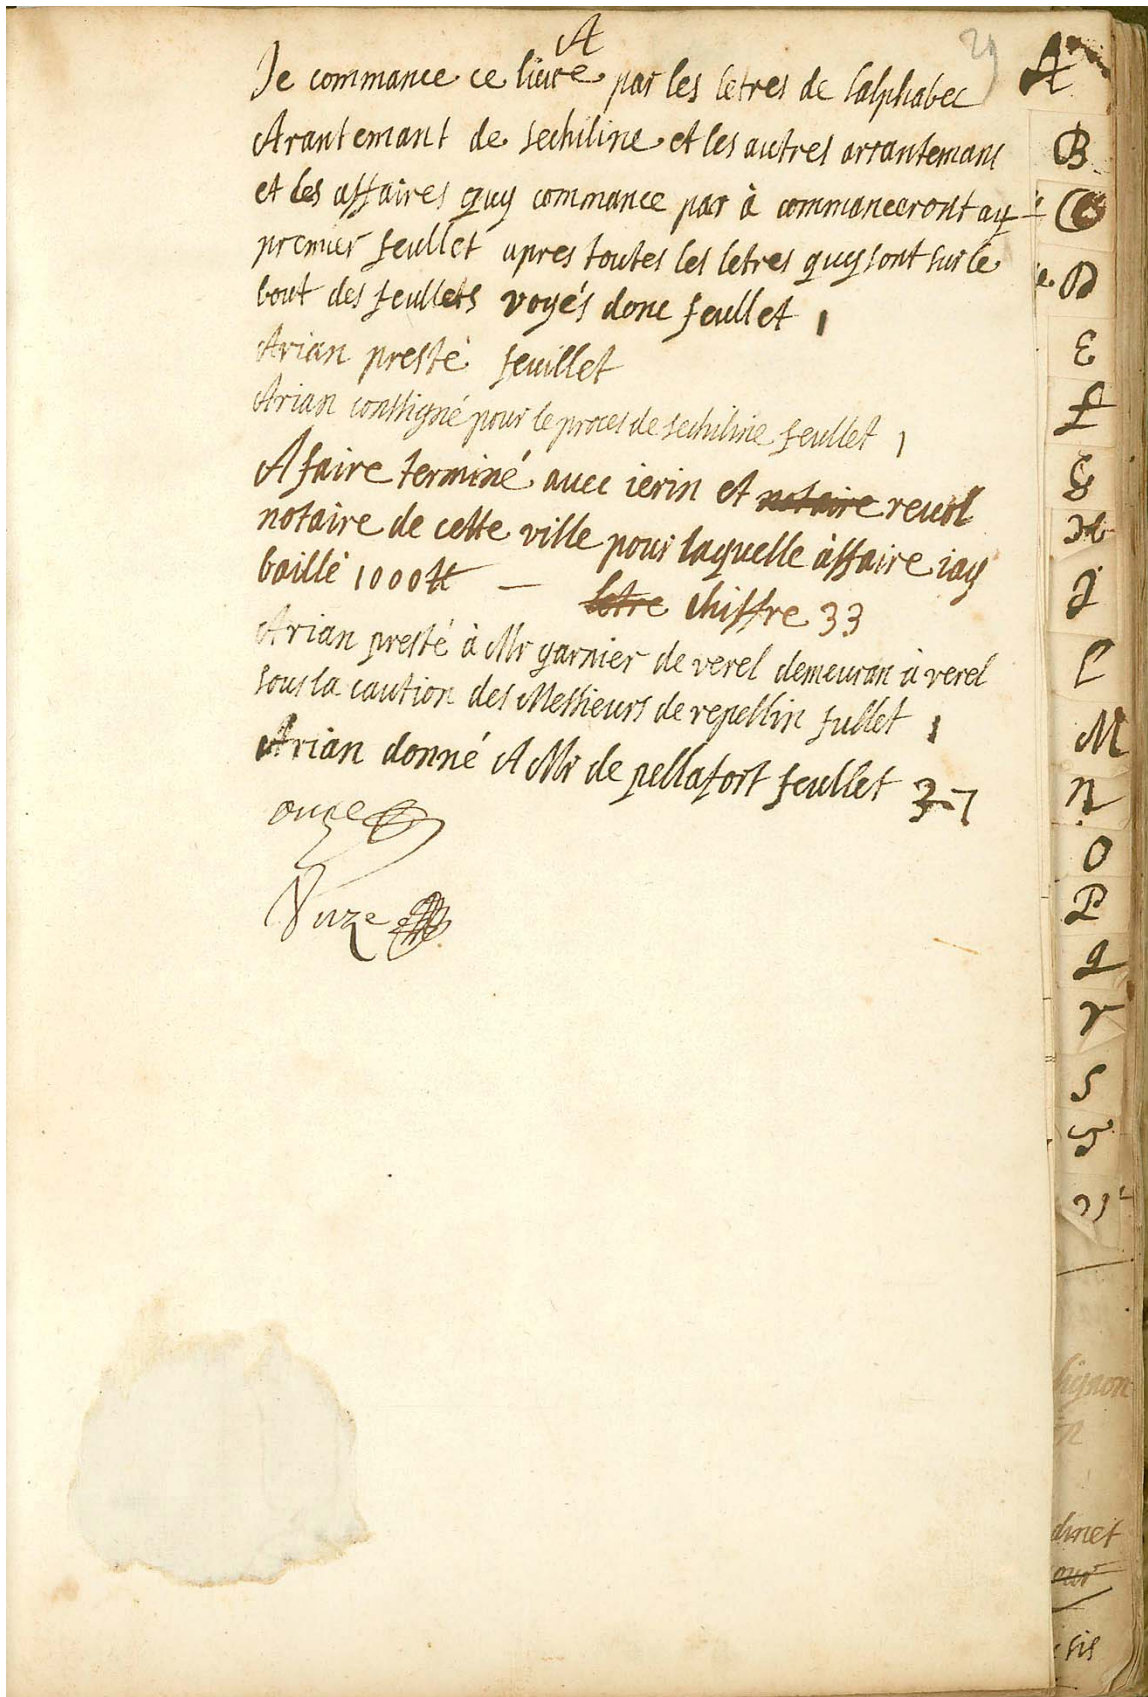 A
29
Je commance ce livre par les letres de lalphabec
Arantemant de sechiline et les autres arrantemans
et les affaires quy commance par à commanceront au
premier feullet apres toutes les letres quy sont sur le
bout des feullets voyés donc feullet 1
Arian presté feuillet
Arian consigné pour le proces de sechiline feullet 1
Afaire terminé avec ierin et notaire revol
notaire de cette ville pour laquelle àffaire iay
baillé 1000tt — letre chiffre 33
Arian presté à Mr garnier de verel demeuran à verel
sous la caution des Messieurs de repellin fullet 1
Arian donné A Mr de pellafort feullet 37
A
B
C
D
E
F
G
H
J
L
M
N
O
P
q
r
S
dinet
sis